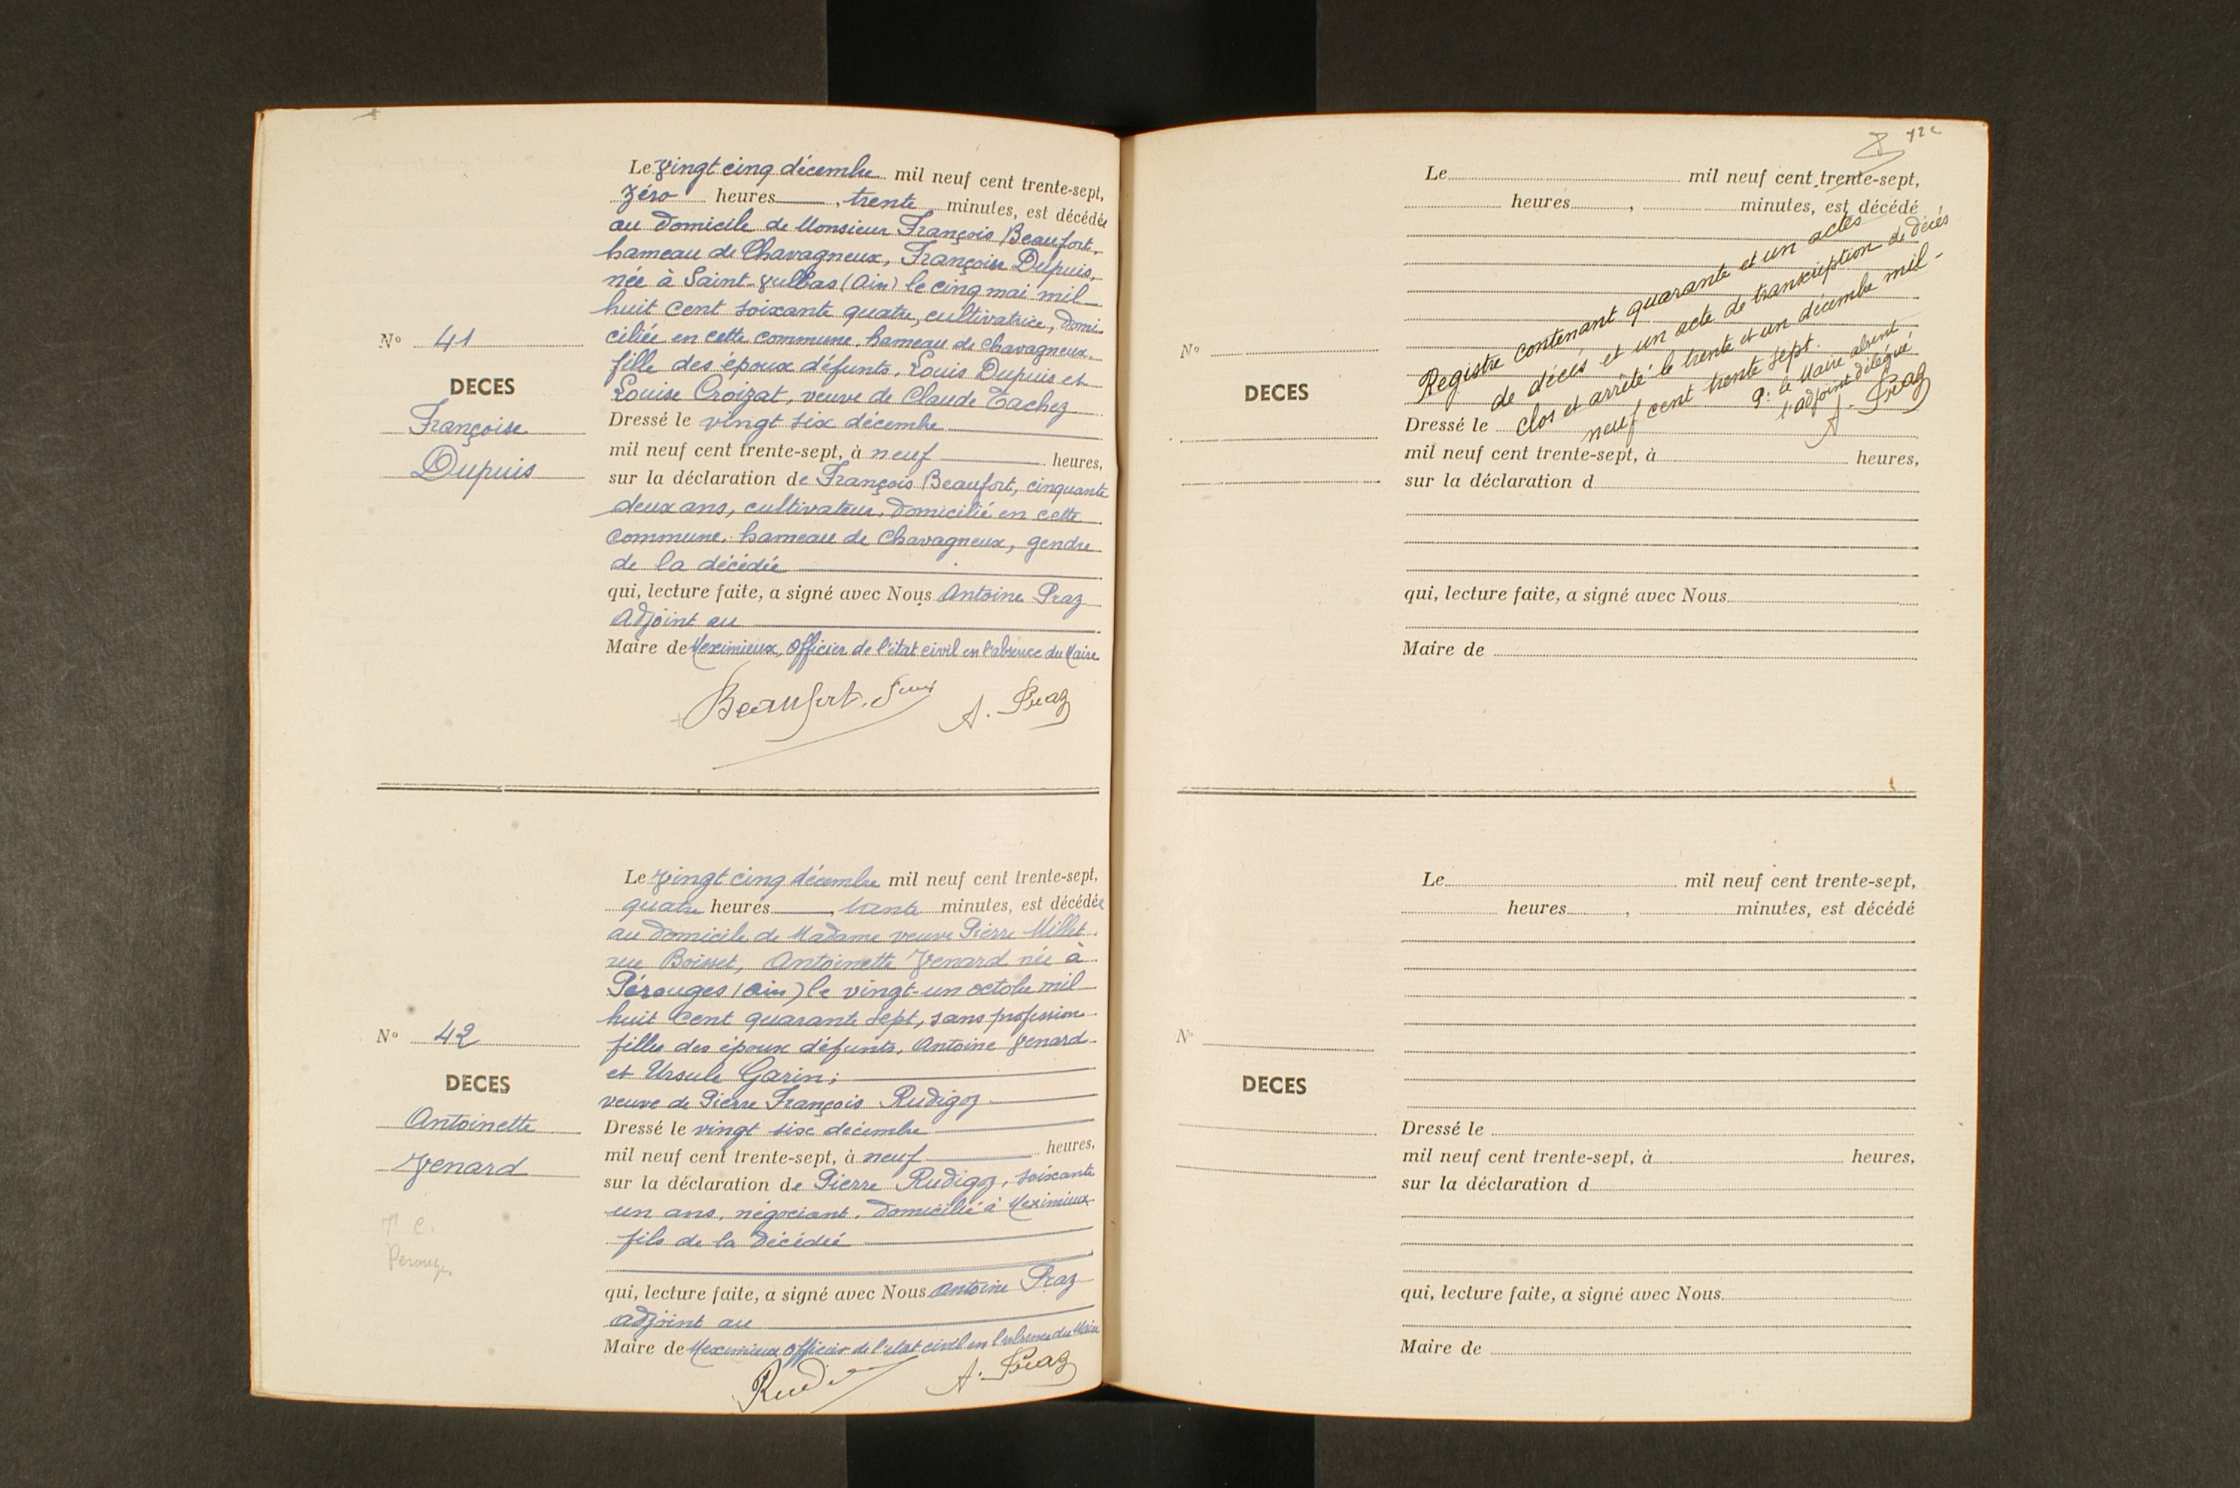 Le vingt cinq décembre mil neuf cent trente-sept,
zéro heures, trente minutes, est décédée
au domicile de Monsieur François Beaufort,
hameau de Chavagneux, Françoise Dupuis,
née à Saint-Vulbas (Ain) le cinq mai mil
huit cent soixante quatre, cultivatrice, domi-
ciliée en cette commune, hameau de Chavagneux,
fille des époux défunts, Louis Dupuis et
Louise Croizat, veuve de Claude Tachez
Nº 41
DECES
Françoise
Dupuis
Dressé le vingt six décembre
mil neuf cent trente-sept, à neuf heures,
sur la déclaration de François Beaufort, cinquante
deux ans, cultivateur, domicilié en cette
commune, hameau de Chavagneux, gendre
de la décédée
qui, lecture faite, a signé avec Nous Antoine Praz
Adjoint au
Maire de Meximieux, Officier de l'état civil en l'absence du Maire
Beaufort A. Praz
Le vingt cinq décembre mil neuf cent trente-sept,
quatre heures, trente minutes, est décédée
au domicile de Madame veuve Pierre Millet
rue Boisset, Antoinette Venard née à
Pérouges (Ain) le vingt-un octobre mil
huit cent quarante sept, sans profession
fille des époux défunts, Antoine Venard
et Ursule Garin;
veuve de Pierre François Rudigoz
Nº 42
DECES
Antoinette
Venard
Pérouges
Dressé le vingt six décembre
mil neuf cent trente-sept, à neuf heures,
sur la déclaration de Pierre Rudigoz, soixante
un ans, négociant, domicilié à Meximieux
fils de la décédée
qui, lecture faite, a signé avec Nous Antoine Praz
adjoint au
Maire de Meximieux Officier de l'état civil en l'absence du Maire
A. Praz
Le mil neuf cent trente-sept,
heures, minutes, est décédé
Registre contenant quarante et un actes
de décès et un acte de transcription de décès
clos et arrêté le trente et un décembre mil-
neuf cent trente sept.
P. le Maire absent,
l'adjoint délégué,
A. Praz
Nº
DECES
Dressé le
mil neuf cent trente-sept, à heures,
sur la déclaration d
qui, lecture faite, a signé avec Nous
Maire de
Le mil neuf cent trente-sept,
heures, minutes, est décédé
Nº
DECES
Dressé le
mil neuf cent trente-sept, à heures,
sur la déclaration d
qui, lecture faite, a signé avec Nous
Maire de